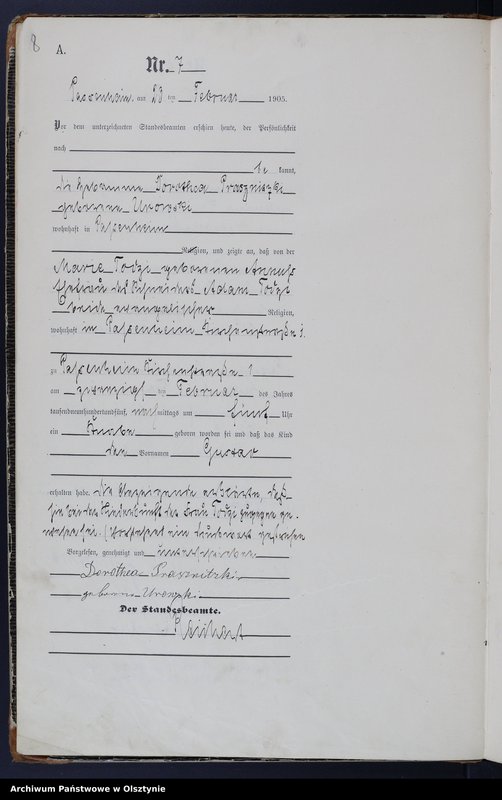 8
A.
Nr. 7
Passenheim am 23 ten Februar 1905.
Vor dem unterzeichneten Standesbeamten erschien heute, der Persönlichkeit
nach
be kannt,
die Hebamme Dorothea
geborene
wohnhaft in Passenheim
Religion, und zeigte an, daß von der
Marie geborenen
Ehefrau des Schneiders Adam
beide evangelischer Religion,
wohnhaft in Passenheim
zu Passenheim
am zwanzigsten ten Februar des Jahres
tausendneunhundertundfünf, nachmittags um fünf Uhr
ein Knabe geboren worden sei und daß das Kind
den Vornamen Gustav
erhalten habe. Die Anzeigende erklärte, daß
sie bei der Niederkunft der Frau zugegen ge-
wesen sei.
Vorgelesen, genehmigt und unterschrieben
Dorothea
geborene
Der Standesbeamte.
Archiwum Państwowe w Olsztynie